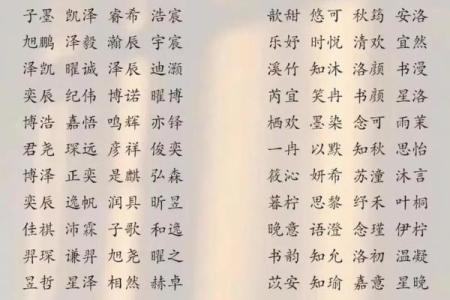 子墨 凯泽 睿希 浩宸
旭鹏 泽毅 瀚辰 宇宸
泽凯 曜诚 泽辰 迪灏
奕辰 纪伟 博诺 曜博
博浩 嘉悟 鸣辉 亦铎
君尧 琛远 彦祥 俊奕
博泽 正奕 是麒 弘森
奕辰 逸帆 润具 昕昱
佳棋 沛霖 子歌 和逸
羿琛 谦羿 旭尧 曜之
昱哲 星泽 相然 赫卓
歆甜 悠可 秋筠 安洛
乐妤 时悦 清欢 宜然
溪竹 知沐 洛颜 书漫
芮宜 笑冉 书颜 星洛
栖欢 墨染 念可 雨茉
一冉 以默 知秋 思怡
筱沁 妍希 苏潼 沐言
暮柠 思黎 纾禾 叶桐
晚意 语澄 念瑾 伊柠
书韵 知允 洛初 温凝
苡安 知瑜 嘉意 星晚